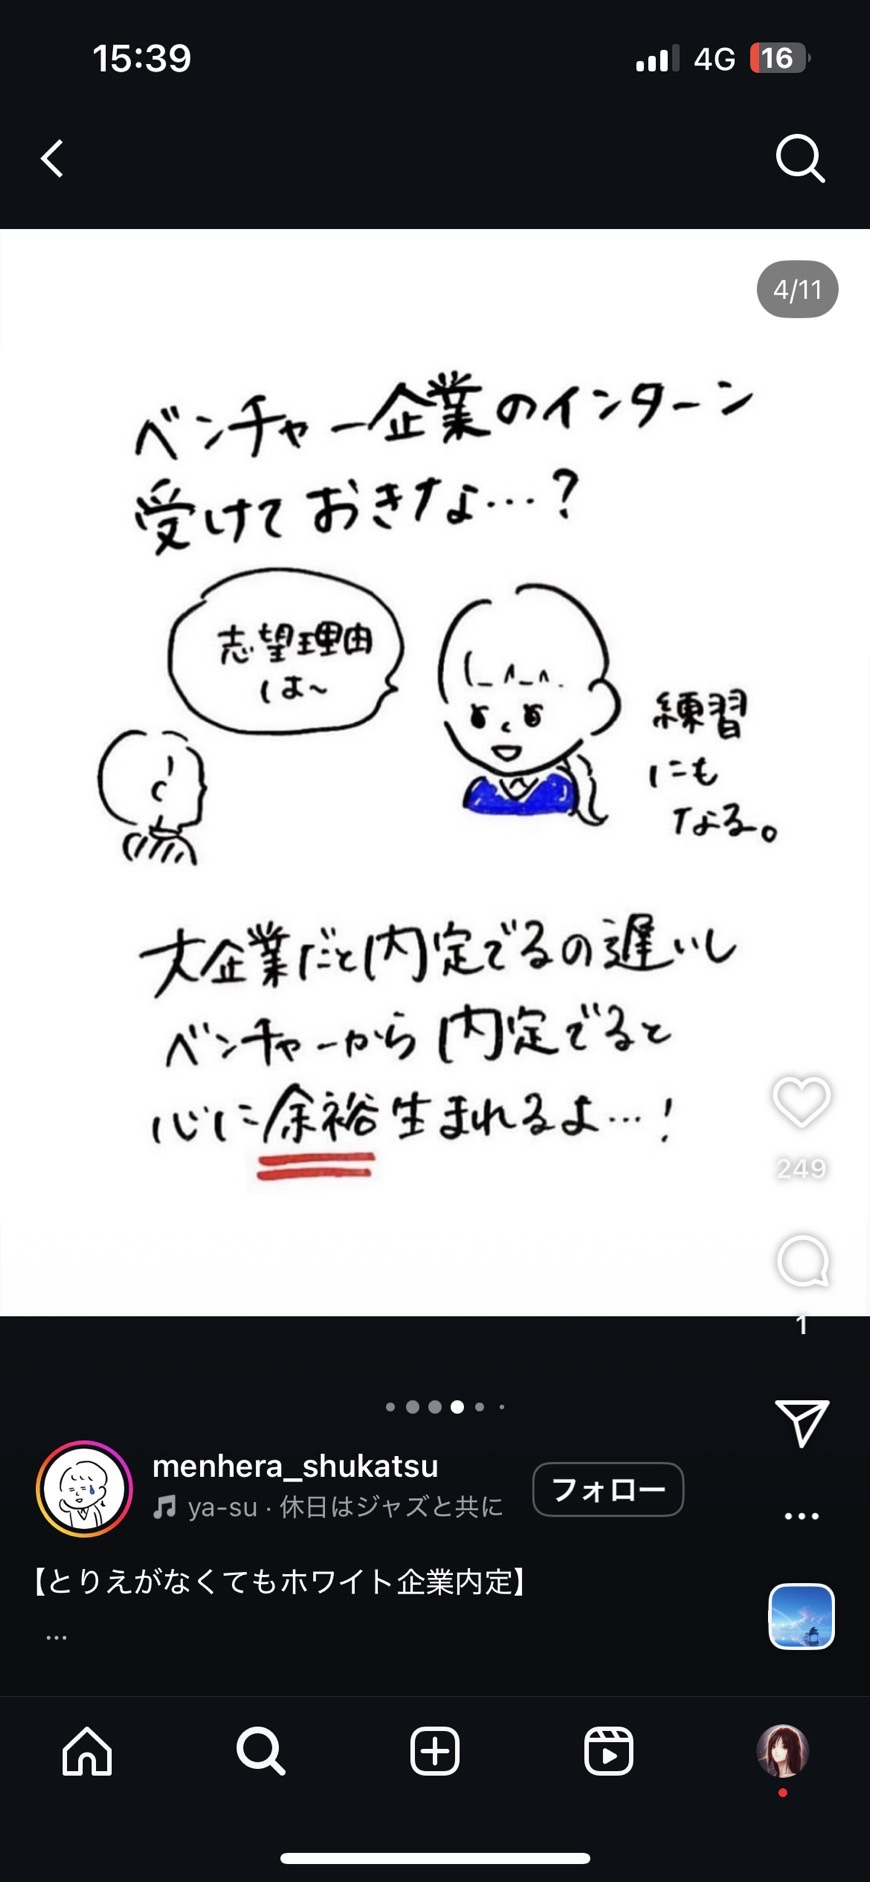 15:39
4G
16
4/11
ベンチャー企業のインターン
受けておきな…?
志望理由
は〜
練習
にも
なる。
大企業だと内定でるの遅いし
ベンチャーから内定でると
心に余裕生まれるよ…!
249
1
menhera_shukatsu
フォロー
ya-su · 休日はジャズと共に
【とりえがなくてもホワイト企業内定】
...